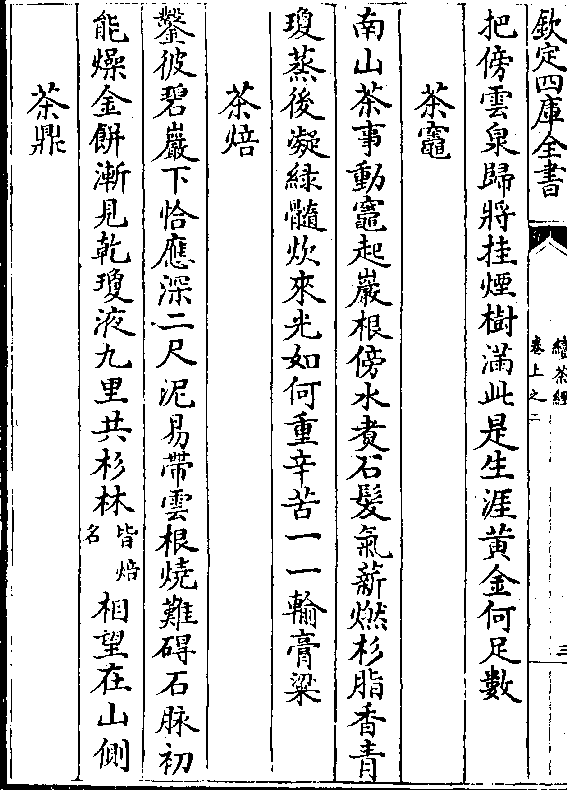 欽定四庫全書
續茶經
卷上之二
三
把傍雲泉歸將挂煙樹滿此是生涯黃金何足數
茶竈
南山茶事動竈起巖根傍水煑石髮氣薪燃杉脂香青
瓊蒸後凝綠髓炊來光如何重辛苦一一輸膏粱
茶焙
鑿彼碧巖下恰應深二尺泥易帶雲根燒難礙石脉初
能燥金餅漸見乾瓊液九里共杉林皆焙名相望在山側
茶鼎